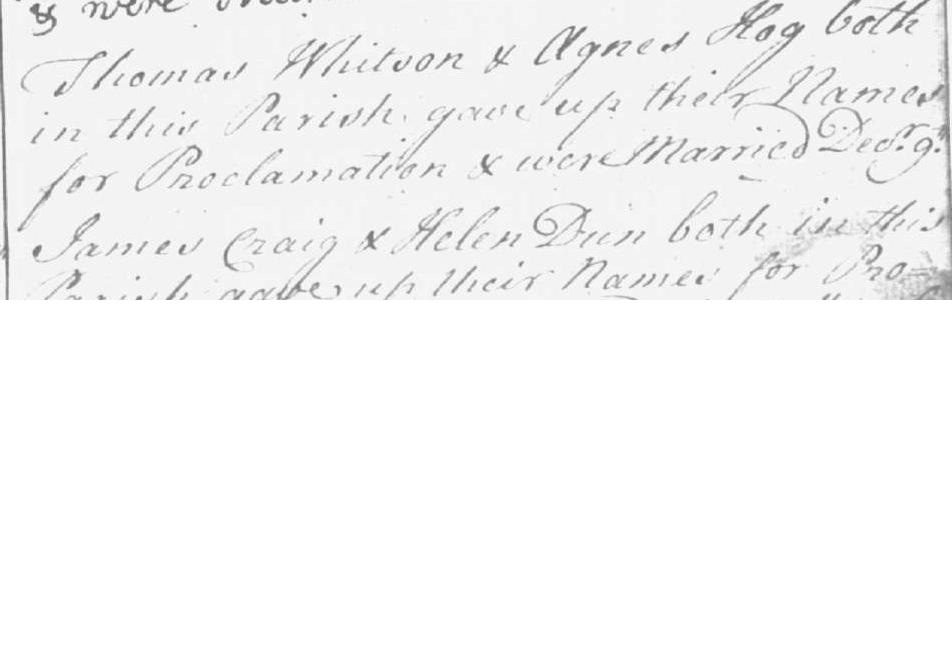 & were
Thomas Whitson & Agnes Hog both
in this Parish gave up their Names
for Proclamation & were Married Decr. 9t.
James Craig & Helen Dun both in this
Parish gave up their Names for Pro-